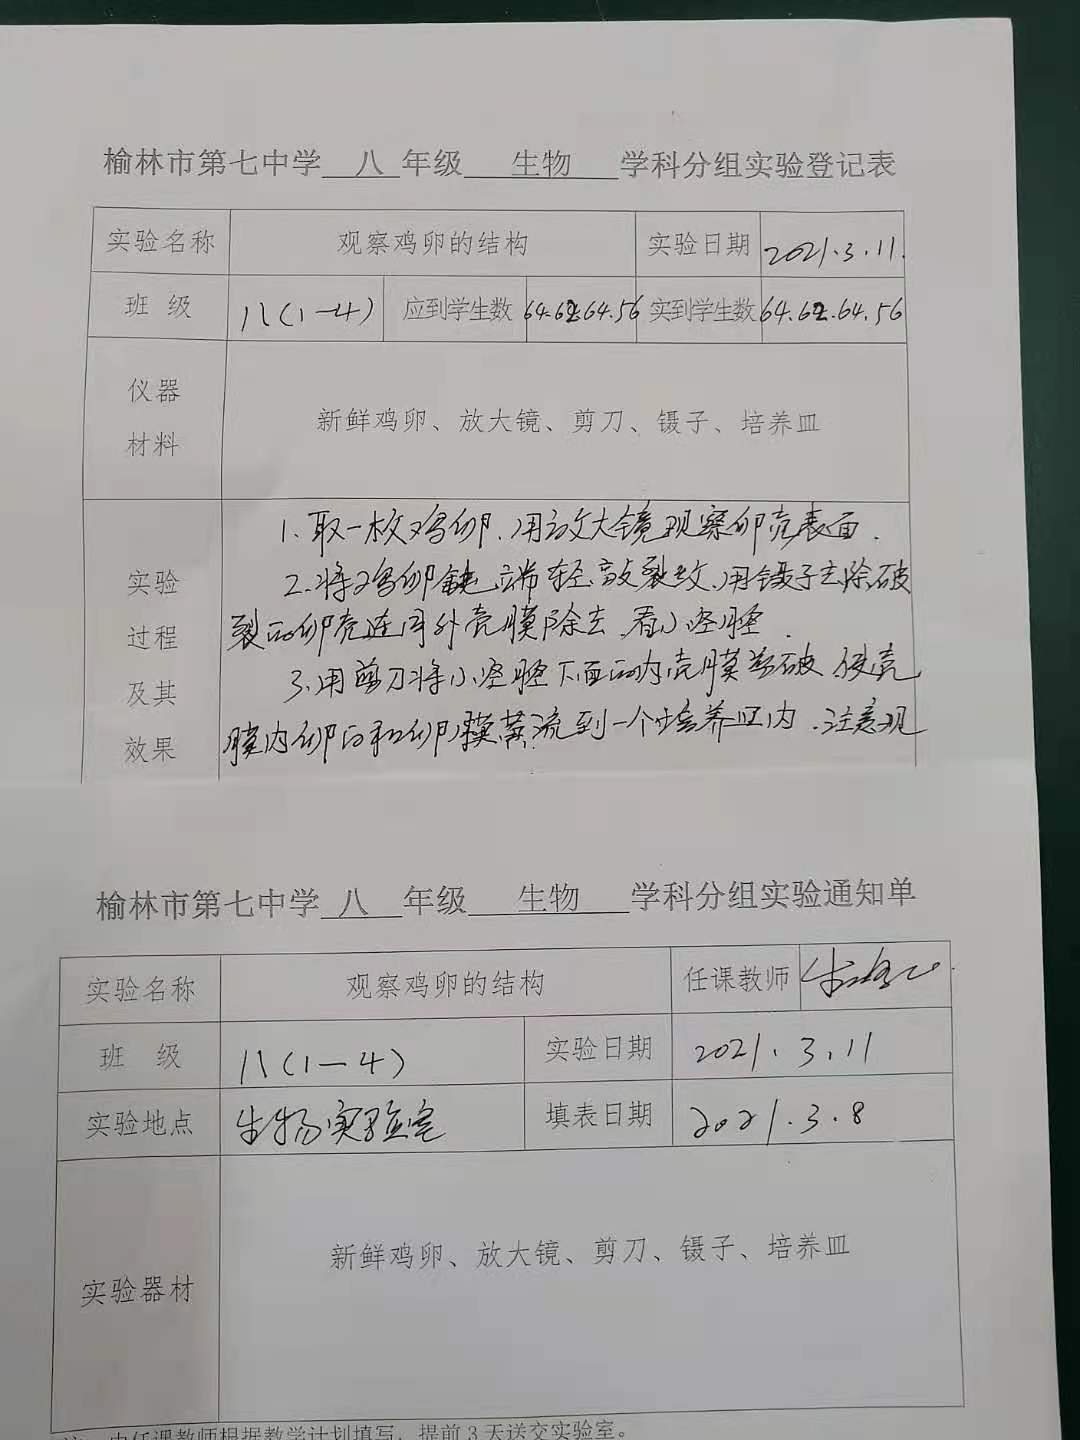 榆林市第七中学 八 年级 生物 学科分组实验登记表
实验名称 观察鸡卵的结构 实验日期 2021.3.11.
班 级 八(1-4) 应到学生数 64.62.64.56 实到学生数 64.62.64.56
仪器
材料
新鲜鸡卵、放大镜、剪刀、镊子、培养皿
实验
过程
及其
效果
1.取一枚鸡卵.用放大镜观察卵壳表面.
2.将鸡卵钝端轻敲裂纹.用镊子去除破
裂的卵壳连同外壳膜除去.看小胚胚.
3.用剪刀将小胚胚下面的内壳膜剪破.使壳
膜内卵白和卵黄流到一个培养皿内.注意观
榆林市第七中学 八 年级 生物 学科分组实验通知单
实验名称 观察鸡卵的结构 任课教师
班 级 八(1-4) 实验日期 2021.3.11
实验地点 生物实验室 填表日期 2021.3.8
实验器材 新鲜鸡卵、放大镜、剪刀、镊子、培养皿
注：由任课教师根据教学计划填写，提前3天送交实验室。